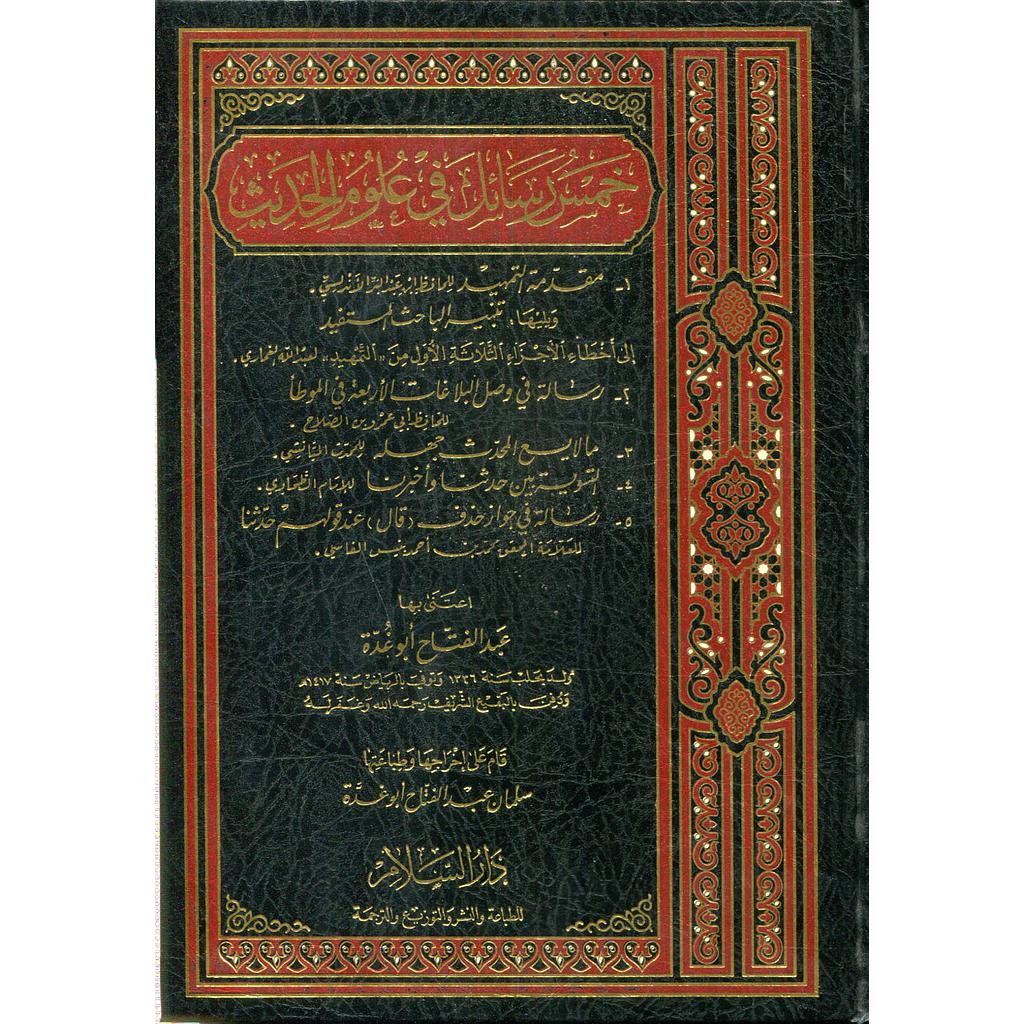 خمس رسائل في علوم الحديث
١- مقدّمة التمهيد للحافظ ابن عبد البرّ الأندلسيّ.
ويليها: تنبيه الباحث المستفيد
إلى أخطاءِ الأجزاءِ الثلاثة الأُوَل مِنَ «التَّمْهِيدِ» لعبد الله الغماري.
٢- رسالة في وصل البلاغات الأربعة في الموطأ
للحافظ أبي عمرو بن الصَّلاح.
٣- ما لا يسع المحدّث جهله للمحدّث الميّانِشي.
٤- التسوية بين حدثنا وأخبرنا للإمام الطّحاوي.
٥- رسالة في جواز حذف (قال) عند قولهم حدّثنا
للعلّامة المحقق محمد بن أحمد بنيس الفاسي.
اعتَنَى بها
عَبد الفتّاح أبو غُدّة
وُلد بحلب سنة ١٣٣٦ وتوفي بالرياض سنة ١٤١٧هـ
ودُفن بالبقيع الشريف رحمه الله وغفر له
قَامَ عَلى إخراجهَا وَطِبَاعَتِها
سلمان عبد الفتاح أبو غدَّة
دَارُ السَّلَام
للطباعة والنشر والتوزيع والترجمة